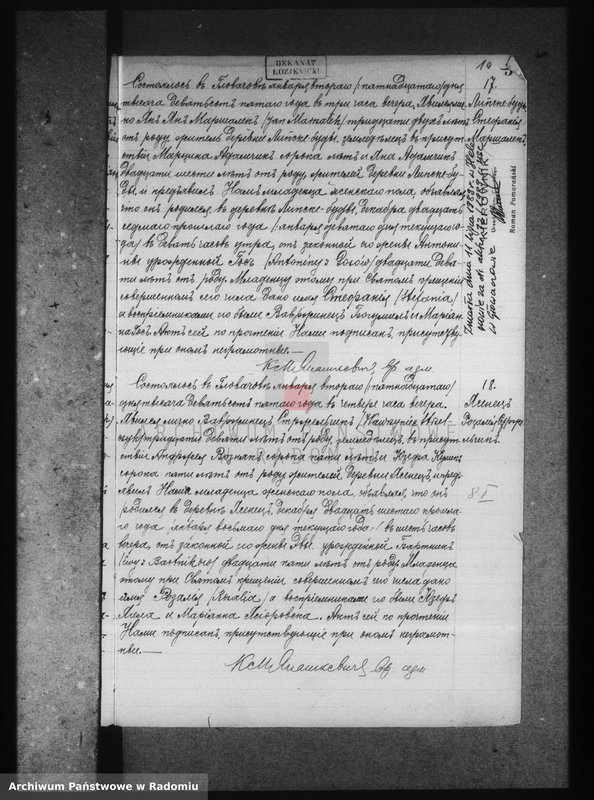 DEKANAT
KOZIENICKI
10
5
17.
Липске буды
Стефанія
Маршалекъ
Состоялось въ Гловачовѣ января втораго /пятнадцатаго/ дня
тысяча девятьсотъ пятаго года въ три часа вечера. Явился
но Янъ Маршалекъ /Jan Marszałek/ тридцати двухъ лѣтъ
отъ роду, житель деревни Липске буды, земледѣлецъ, въ присут-
ствіи Марцина Адамчикъ сорока лѣтъ и Яна Адамчикъ
двадцати шести лѣтъ отъ роду, жителей деревни Липске бу-
ды и предъявилъ Намъ младенца женскаго пола, объявляя,
что онъ родился въ деревнѣ Липске-буды, декабря двадцать
седьмаго прошлаго года /января девятаго дня текущаго го-
да/ въ девять часовъ утра, отъ законной его жены Антони-
ны урожденной Гось /Antoniny z Gosiów/ двадцати девя-
ти лѣтъ отъ роду. Младенцу этому при Святомъ крещеніи
совершенномъ сего числа дано имя Стефанія /Stefania/
а воспріемниками его были Вавринецъ и Маріан-
на Гось. Актъ сей по прочтеніи Нами подписанъ, присутству-
ющіе при ономъ неграмотные.—
Zmarła dnia 11 lipca 1988 r. w
KIEROWNIK
Roman Pomarański
18.
Ясенецъ
Розалія
Состоялось въ Гловачовѣ января втораго /пятнадцатаго/
дня тысяча девятьсотъ пятаго года въ четыре часа вечера.
Явился лично Вавринецъ /Wawrzyniec
тридцати девяти лѣтъ отъ роду, земледѣлецъ, въ присут-
ствіи Андрея Возняка сорока пяти лѣтъ и
сорока пяти лѣтъ отъ роду, жителей деревни Ясенецъ, и предъ-
явилъ Намъ младенца женскаго пола, объявляя, что онъ
родился въ деревнѣ Ясенецъ, декабря двадцать шестаго прошла-
го года /января восьмаго дня текущаго года/ въ шесть часовъ
вечера, отъ законной его жены Эвы урожденной
/Ewy z двадцати пяти лѣтъ отъ роду. Младенцу
этому при Святомъ крещеніи совершенномъ сего числа дано
имя Розалія /Rozalia/ а воспріемниками его были
и Маріанна Актъ сей по прочтеніи
Нами подписанъ, присутствующіе при ономъ неграмот-
ные.—
8 I
ARCHIWUM PAŃSTWOWE
W RADOMIU
Archiwum Państwowe w Radomiu